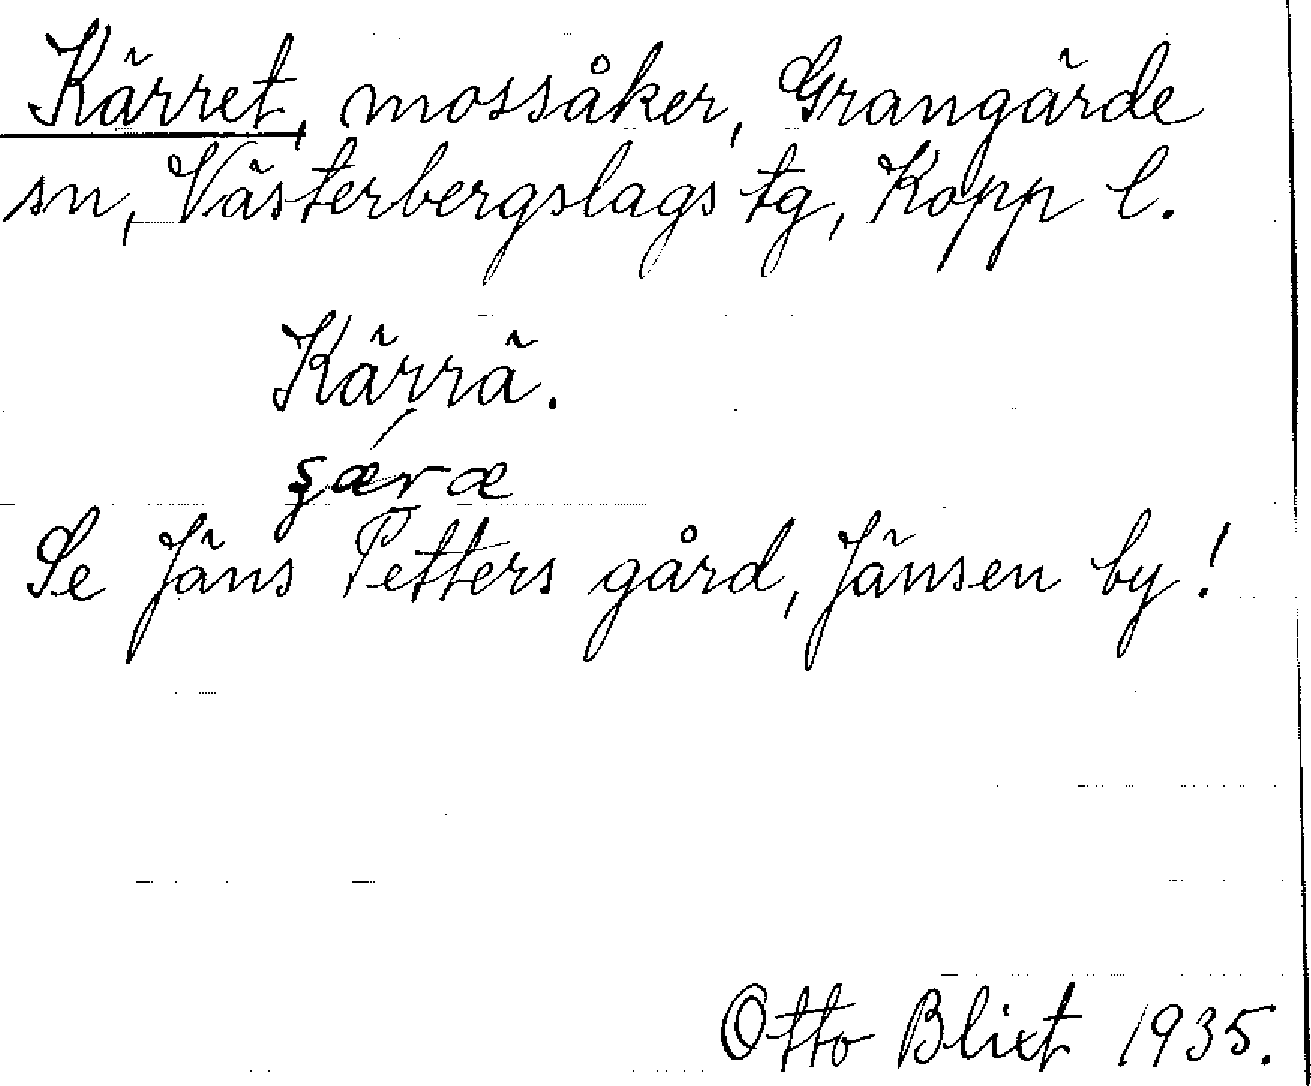 Kärret, mossåker, Grangärde
sn, Västerbergslags tg, Kopp l.
Kärrä.
Se Jäns Petters gård, Jänsen by!
Otto Blixt 1935.